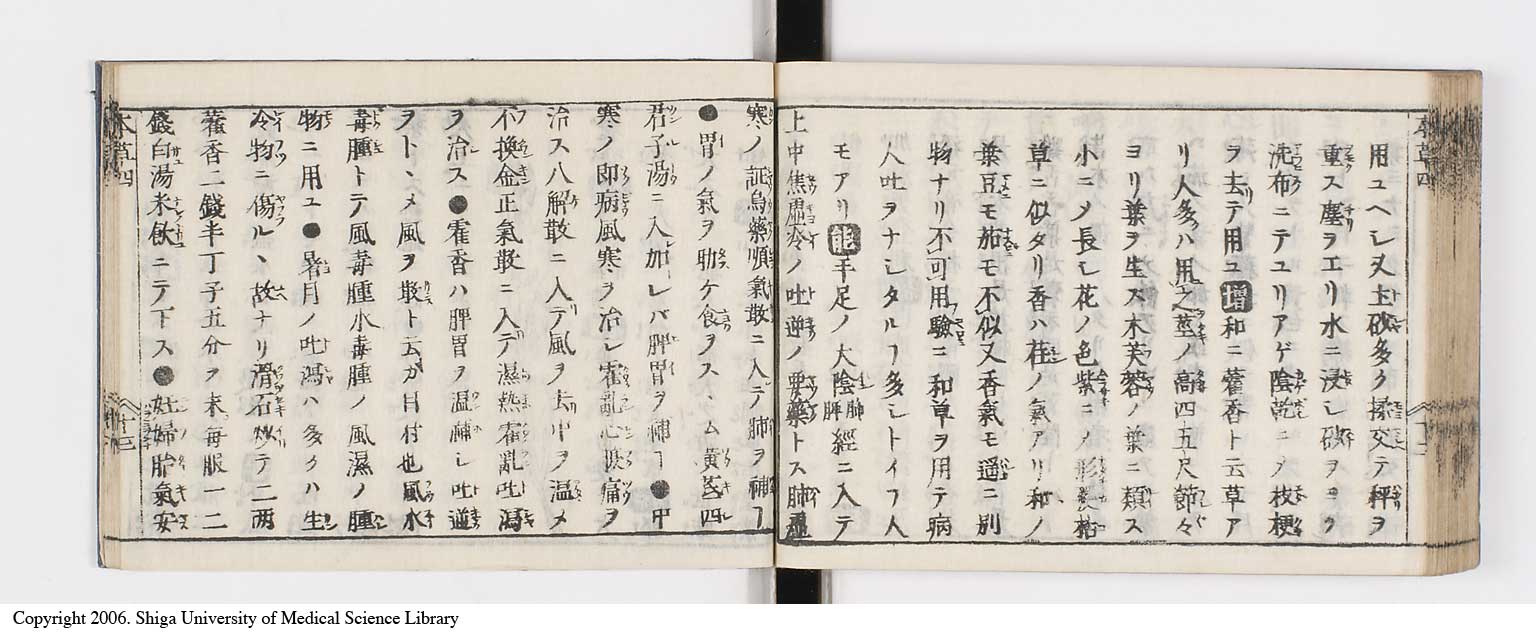 用ユヘシ又土砂多ク揉交テ秤ヲ
重ス塵ヲエリ水ニ浸シ砂ヲヨク
洗布ニテユリアゲ陰乾ニメ枝梗
ヲ去テ用ユ 増 和ニ藿香ト云草ア
リ人多ハ用之莖ノ高四五尺節々
ヨリ葉ヲ生ス木芙蓉ノ葉ニ類ス
小ニメ長シ花ノ色紫ニメ形
草ニ似タリ香ハ荏ノ氣アリ和ノ
葉豆モ茄モ不似又香氣モ遥ニ別
物ナリ不可用驗ニ和草ヲ用テ病
人吐ヲナシタルヿ多シトイフ人
モアリ 能 手足ノ大陰肺脾經ニ入テ
上中焦虚冷ノ吐逆ノ要藥トス肺虚
寒ノ証烏藥順氣散ニ入テ肺ヲ補ヿ
●胃ノ氣ヲ助ケ食ヲスヽム黄芪四
君子湯ニ入加レバ脾胃ヲ補ヿ●中
寒ノ即病風寒ヲ治シ霍亂心腹痛ヲ
治ス八解散ニ入テ風ヲ去中ヲ温メ
不換金正氣散ニ入テ濕熱霍亂吐瀉
ヲ治ス●霍香ハ脾胃ヲ温補シ吐逆
ヲトヽメ風ヲ散ト云カ目付也風水
毒腫トテ風毒腫水毒腫ノ風濕ノ腫
物ニ用ユ●暑月ノ吐瀉ハ多クハ生
冷物ニ傷ルヽ故ナリ滑石炒テ二两
藿香二錢半丁子五分ヲ末毎服一二
錢白湯米飲ニテ下ス●妊婦胎氣安
本草四